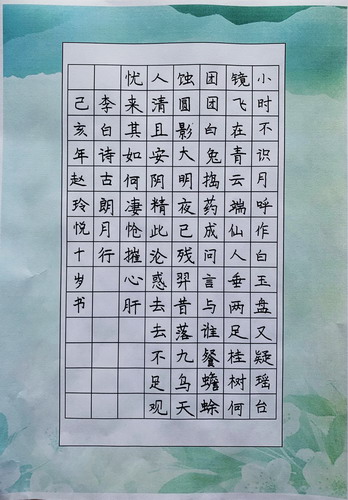 小时不识月呼作白玉盘又疑瑶台
镜飞在青云端仙人垂两足桂树何
团团白兔捣药成问言与谁餐蟾蜍
蚀圆影大明夜已残羿昔落九乌天
人清且安阴精此沦惑去去不足观
忧来其如何凄怆摧心肝
李白诗古朗月行
己亥年赵玲悦十岁书